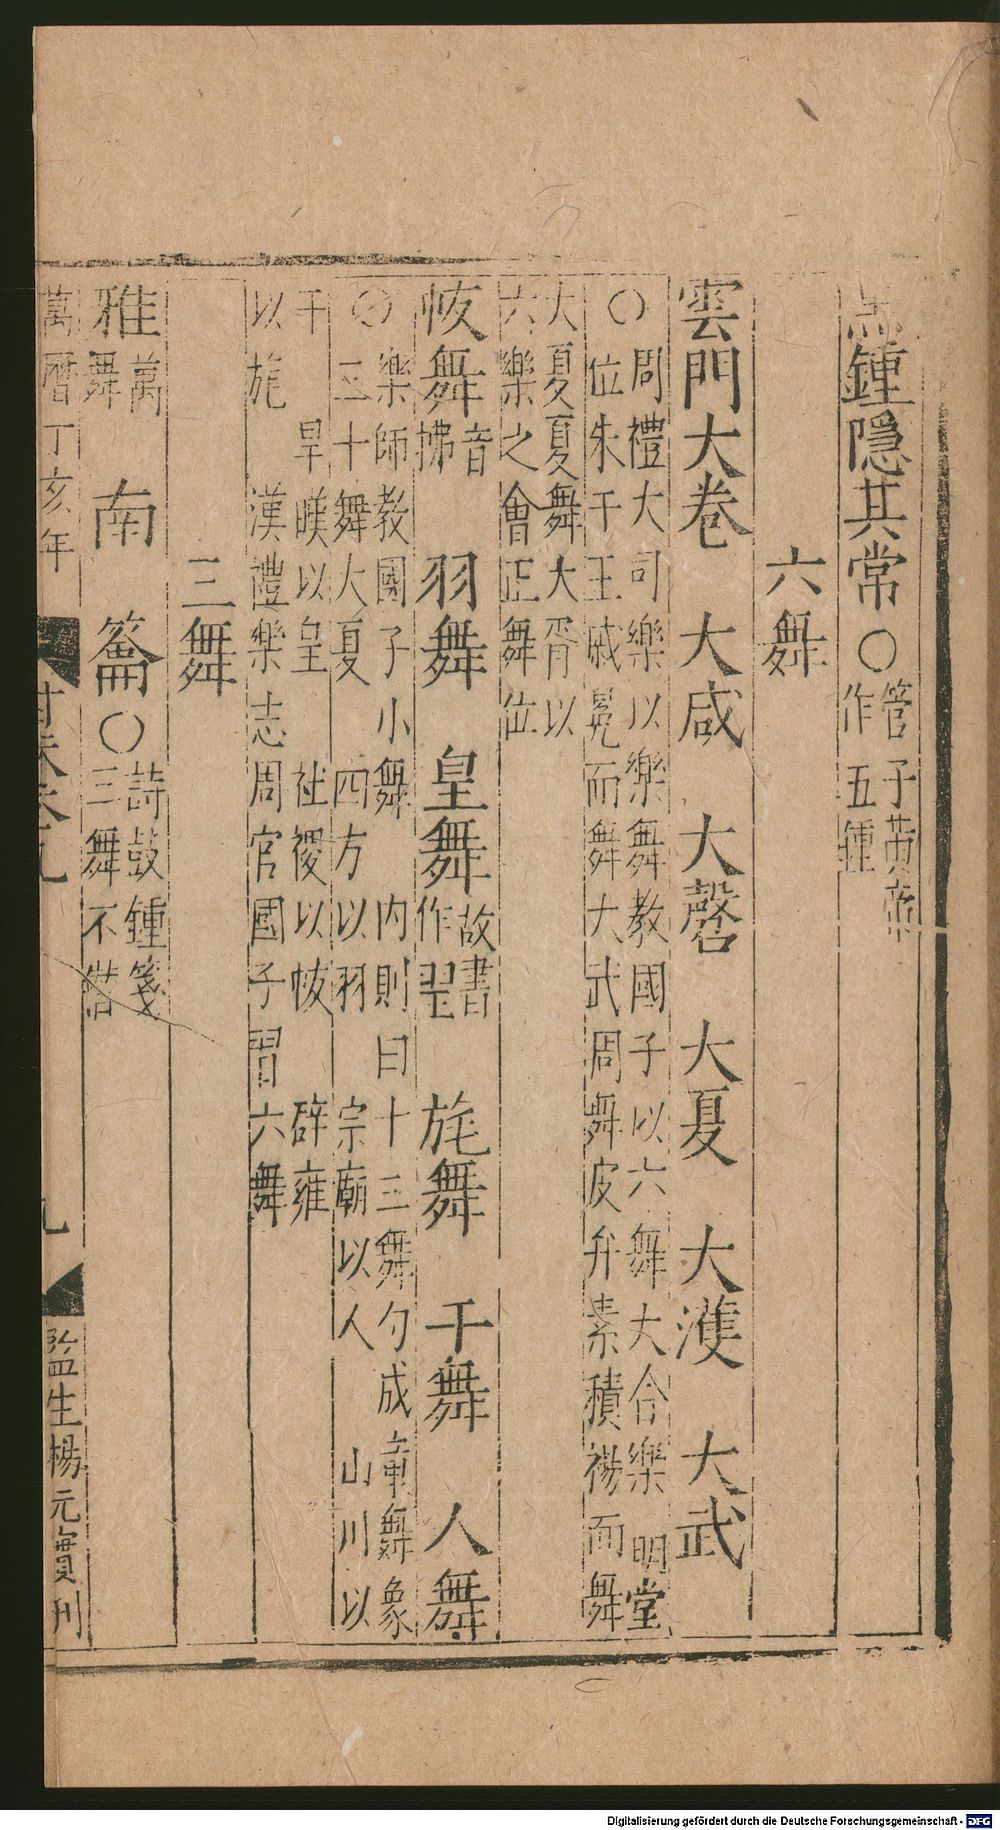 黑鍾隱其常〇管子黃帝
作五鍾
六舞
雲門大卷　大咸　大磬　大夏　大濩　大武
〇周禮大司樂以樂舞教國子以六舞大合樂　明堂
位朱干玉戚冕而舞大武周舞皮弁素積裼而舞
大夏夏舞大胥以
六樂之會正舞位
帗舞音
拂　羽舞　皇舞故書
作翌　旄舞　干舞　人舞
〇樂師教國子小舞　內則曰十三舞勺成童舞象
二十舞大夏　四方以羽　宗廟以人　山川以
干　旱暵以皇　社稷以帗　辟雍
以旄　漢禮樂志周官國子習六舞
三舞
雅萬
舞　南　籥〇詩鼓鍾箋
三舞不僭
萬曆丁亥年
九
監生楊元實刊
Digitalisierung gefördert durch die Deutsche Forschungsgemeinschaft - DFG